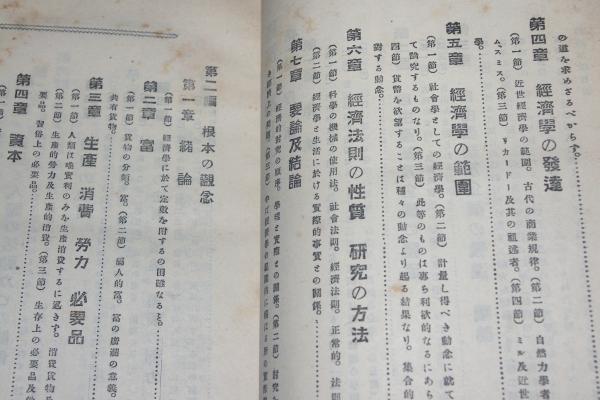 の道を求めざるべからず。
第四章 經濟學の發達
(第一節) 近世經濟學の範圍。古代の商業規律。(第二節) 自然力學者
ム、スミス。(第三節) リカードー及其の祖述者。(第四節) ミル及近世
學。
第五章 經濟學の範圍
(第一節) 社會學としての經濟學。(第二節) 計量し得べき動念に就て
て論究するものなり。(第三節) 此等のものは專ら利欲的なるにあら
四節) 貨幣を欲望することは種々の動念より起る結果なり。集合的
對する動念。
第六章 經濟法則の性質 研究の方法
(第一節) 科學の機械の使用法。社會法則。經濟法則。正常的。法則
(第二節) 經濟學と生活に於ける實際的事實との關係。
第七章 要論及結論
(第一節) 經濟的討究の順序。學理と實際との關係。(第二節) 討究
第二編 根本の觀念
第一章 緒論
(第一節) 經濟學に於て定數を附するの困難なること。
第二章 富
(第一節) 貨物の分類。富。(第二節) 個人的富。富の廣濶の意義。
共有貨物。
第三章 生產 消費 勞力 必要品
(第一節) 人類は唯實利のみを生產消費するに過ぎず。消費貨物
(第二節) 生產的勞力及生產的消費。(第三節) 生存上の必要品及
要品。習俗上の必要品。
第四章 資本
(第一節)